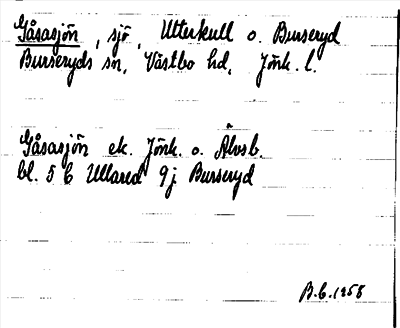 Gåsasjön, sjö, Utterkull o. Burseryd
Burseryds sn, Västbo hd, Jönk. l.
Gåsasjön ek. Jönk. o. Älvsb.
bl. 5 C Ullared 9j Burseryd
B.C. 1958